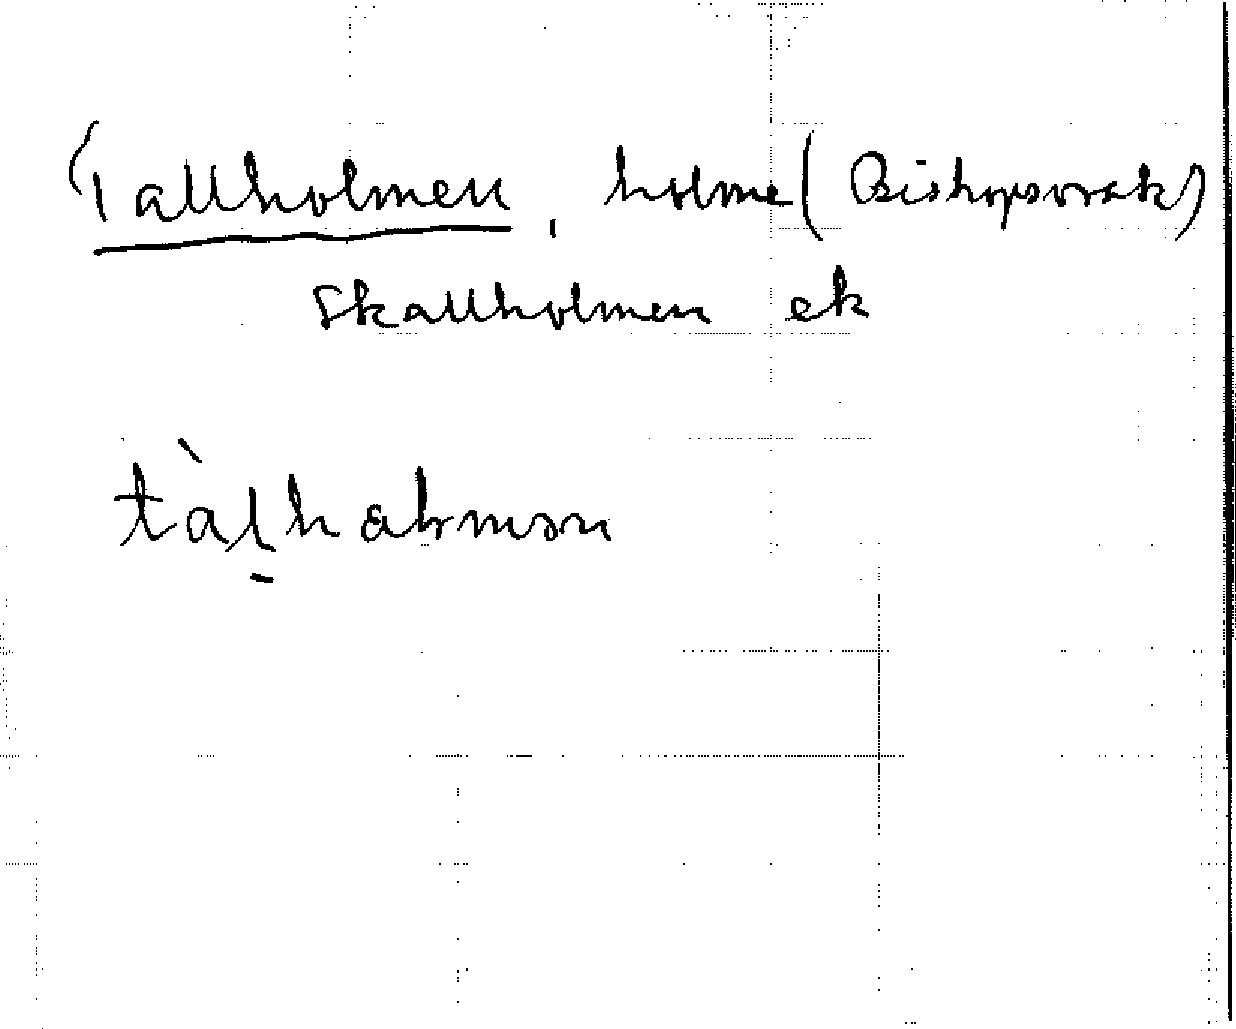 Tallholmen, holme (Biskopsvrak)
Skallholmen ek
tàlhalmən